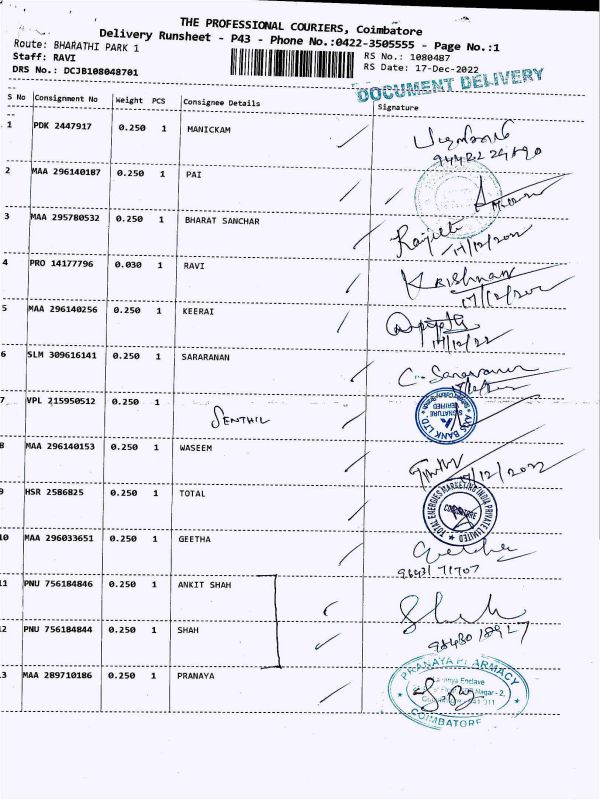 THE PROFESSIONAL COURIERS, Coimbatore
Delivery Runsheet - P43 - Phone No.:0422-3505555 - Page No.:1
Route: BHARATHI PARK 1
Staff: RAVI
DRS No.: DCJB108048701
RS No.: 1080487
RS Date: 17-Dec-2022
DOCUMENT DELIVERY
S No Consignment No Weight PCS Consignee Details Signature
1 PDK 2447917 0.250 1 MANICKAM
2 MAA 296140187 0.250 1 PAI
3 MAA 295780532 0.250 1 BHARAT SANCHAR
17/12/2022
4 PRO 14177796 0.030 1 RAVI Krishnan
5 MAA 296140256 0.250 1 KEERAI
17/12/22
6 SLM 309616141 0.250 1 SARARANAN C. Saravanan
7 VPL 215950512 0.250 1 SENTHIL
AXIS BANK LTD
SIGNATURE VERIFIED
8 MAA 296140153 0.250 1 WASEEM
17/12/2022
9 HSR 2586825 0.250 1 TOTAL
TOTAL ENERGIES MARKETING INDIA PRIVATE LIMITED
COIMBATORE
10 MAA 296033651 0.250 1 GEETHA Geetha
96431 71707
11 PNU 756184846 0.250 1 ANKIT SHAH Shah
12 PNU 756184844 0.250 1 SHAH
98430 18927
13 MAA 289710186 0.250 1 PRANAYA
PRANAYA PHARMACY
Enclave
Nagar - 2,
COIMBATORE